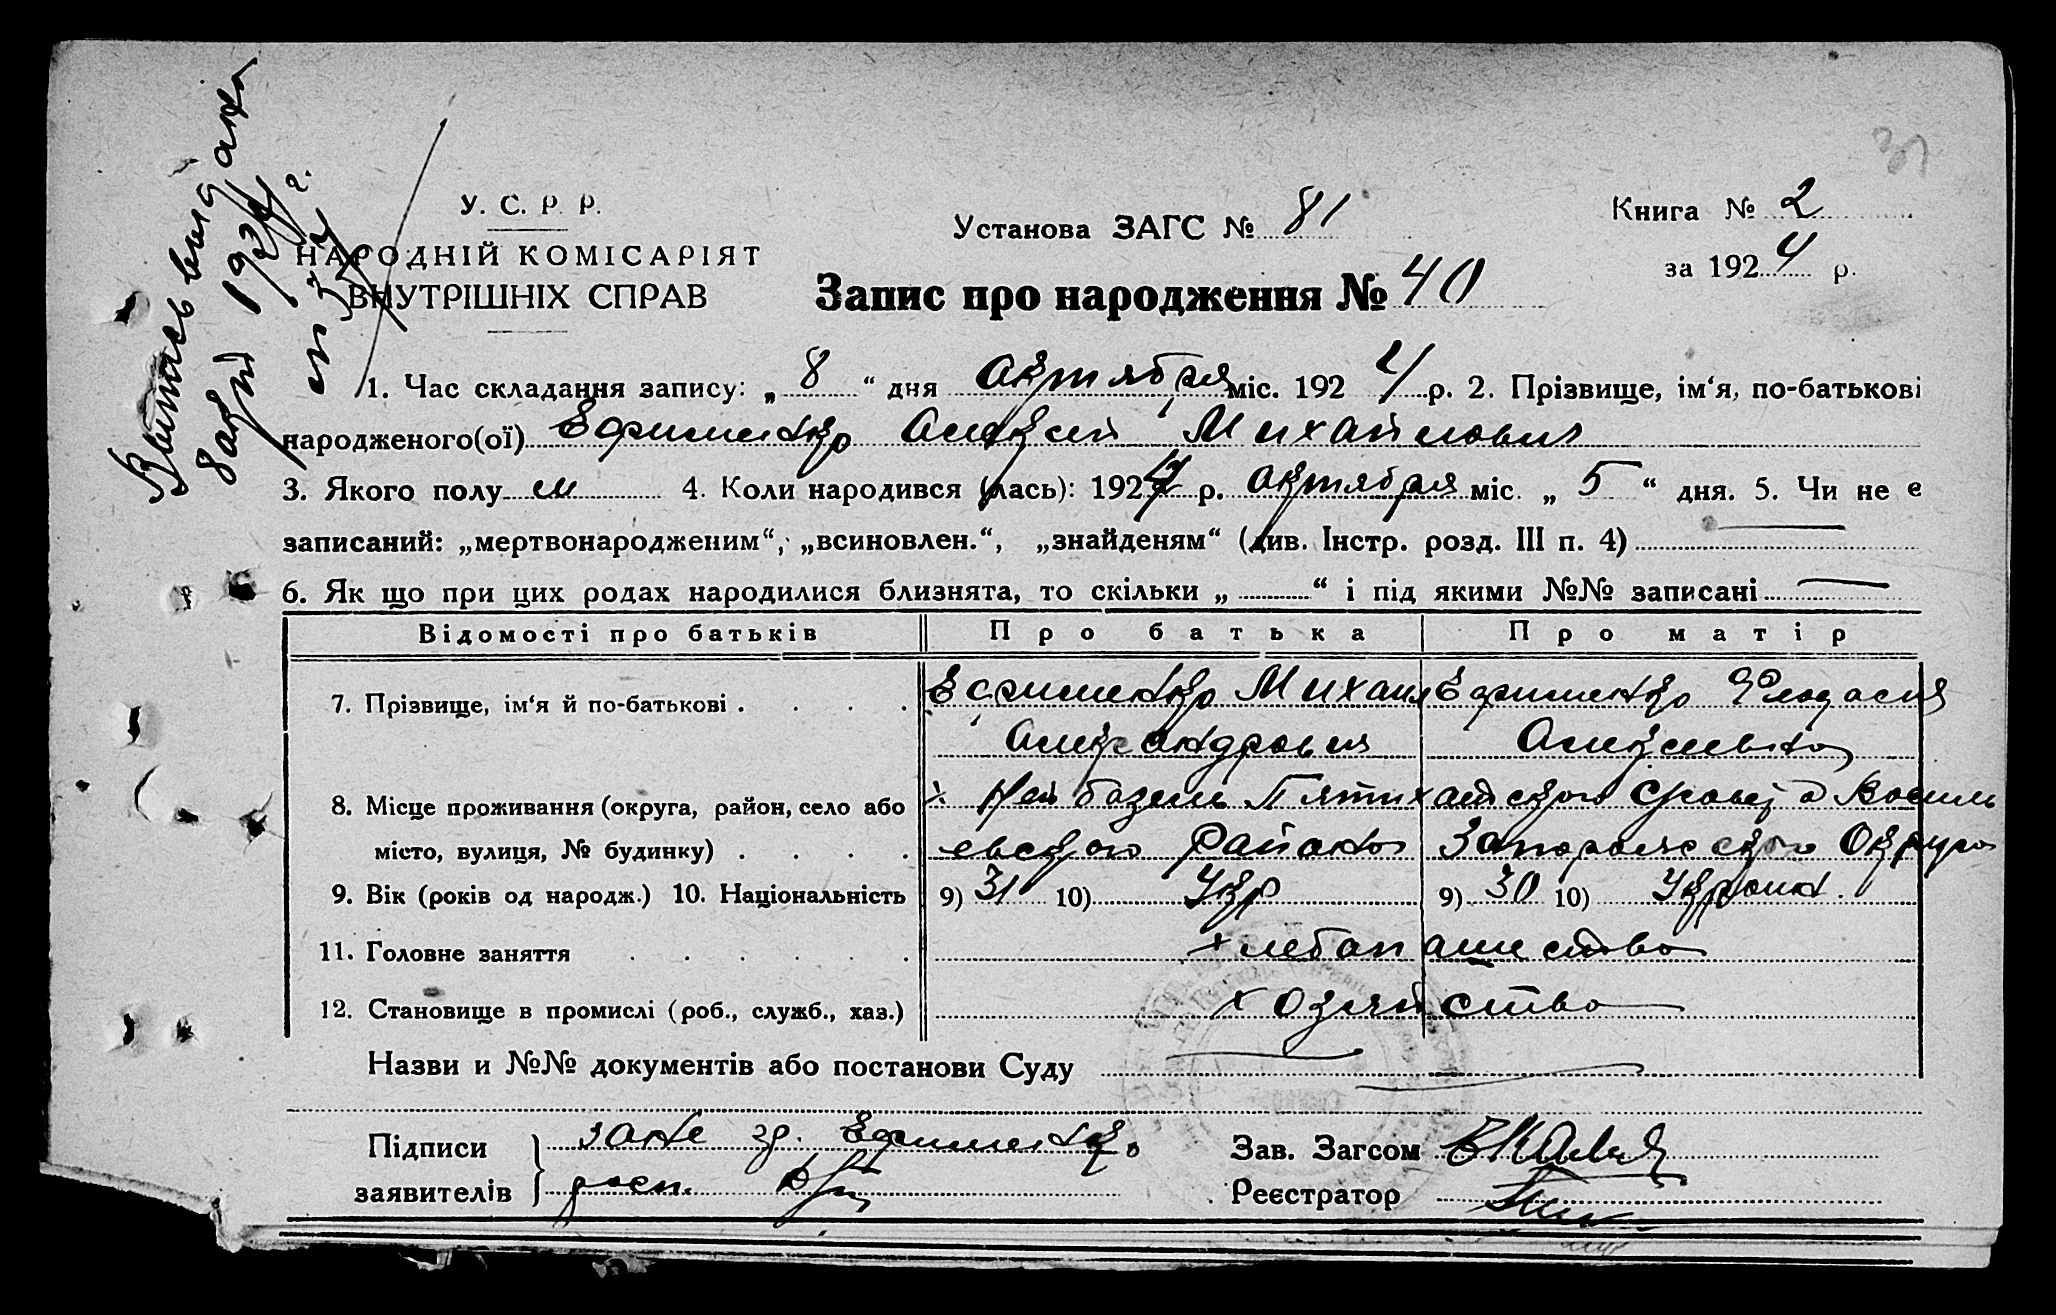 У. С. Р. Р.
НАРОДНІЙ КОМІСАРІЯТ
ВНУТРІШНІХ СПРАВ
Установа ЗАГС № 81
Книга № 2
за 1924 р.
Запис про народження № 40
1. Час складання запису: „ 8 “ дня Октября міс. 1924 р. 2. Прізвище, ім‘я, по-батькові
народженого(ої) Ефименко Алексей Михайлович
3. Якого полу м 4. Коли народився (лась): 192 р. Октября міс. „ 5 “ дня. 5. Чи не є
записаний: „мертвонародженим“, „всиновлен.“, „знайденям“ (див. Інстр. розд. III п. 4)
6. Як що при цих родах народилися близнята, то скільки „ “ і під якими №№ записані
Відомості про батьків Про батька Про матір
7. Прізвище, ім‘я й по-батькові Ефименко Михаил Ефименко Феодосия
Александрович Алексеевна
8. Місце проживання (округа, район, село або Пятихатского Василь
місто, вулиця, № будинку) евского Района Запорожского Округа
9. Вік (років од народж.) 10. Національність 9) 31 10) Укр 9) 30 10) Украин.
11. Головне заняття хлебопашество
12. Становище в промислі (роб., служб., хаз.) хозяйство
Назви и №№ документів або постанови Суду
Підписи Ефименко
заявителів
Зав. Загсом
Реєстратор